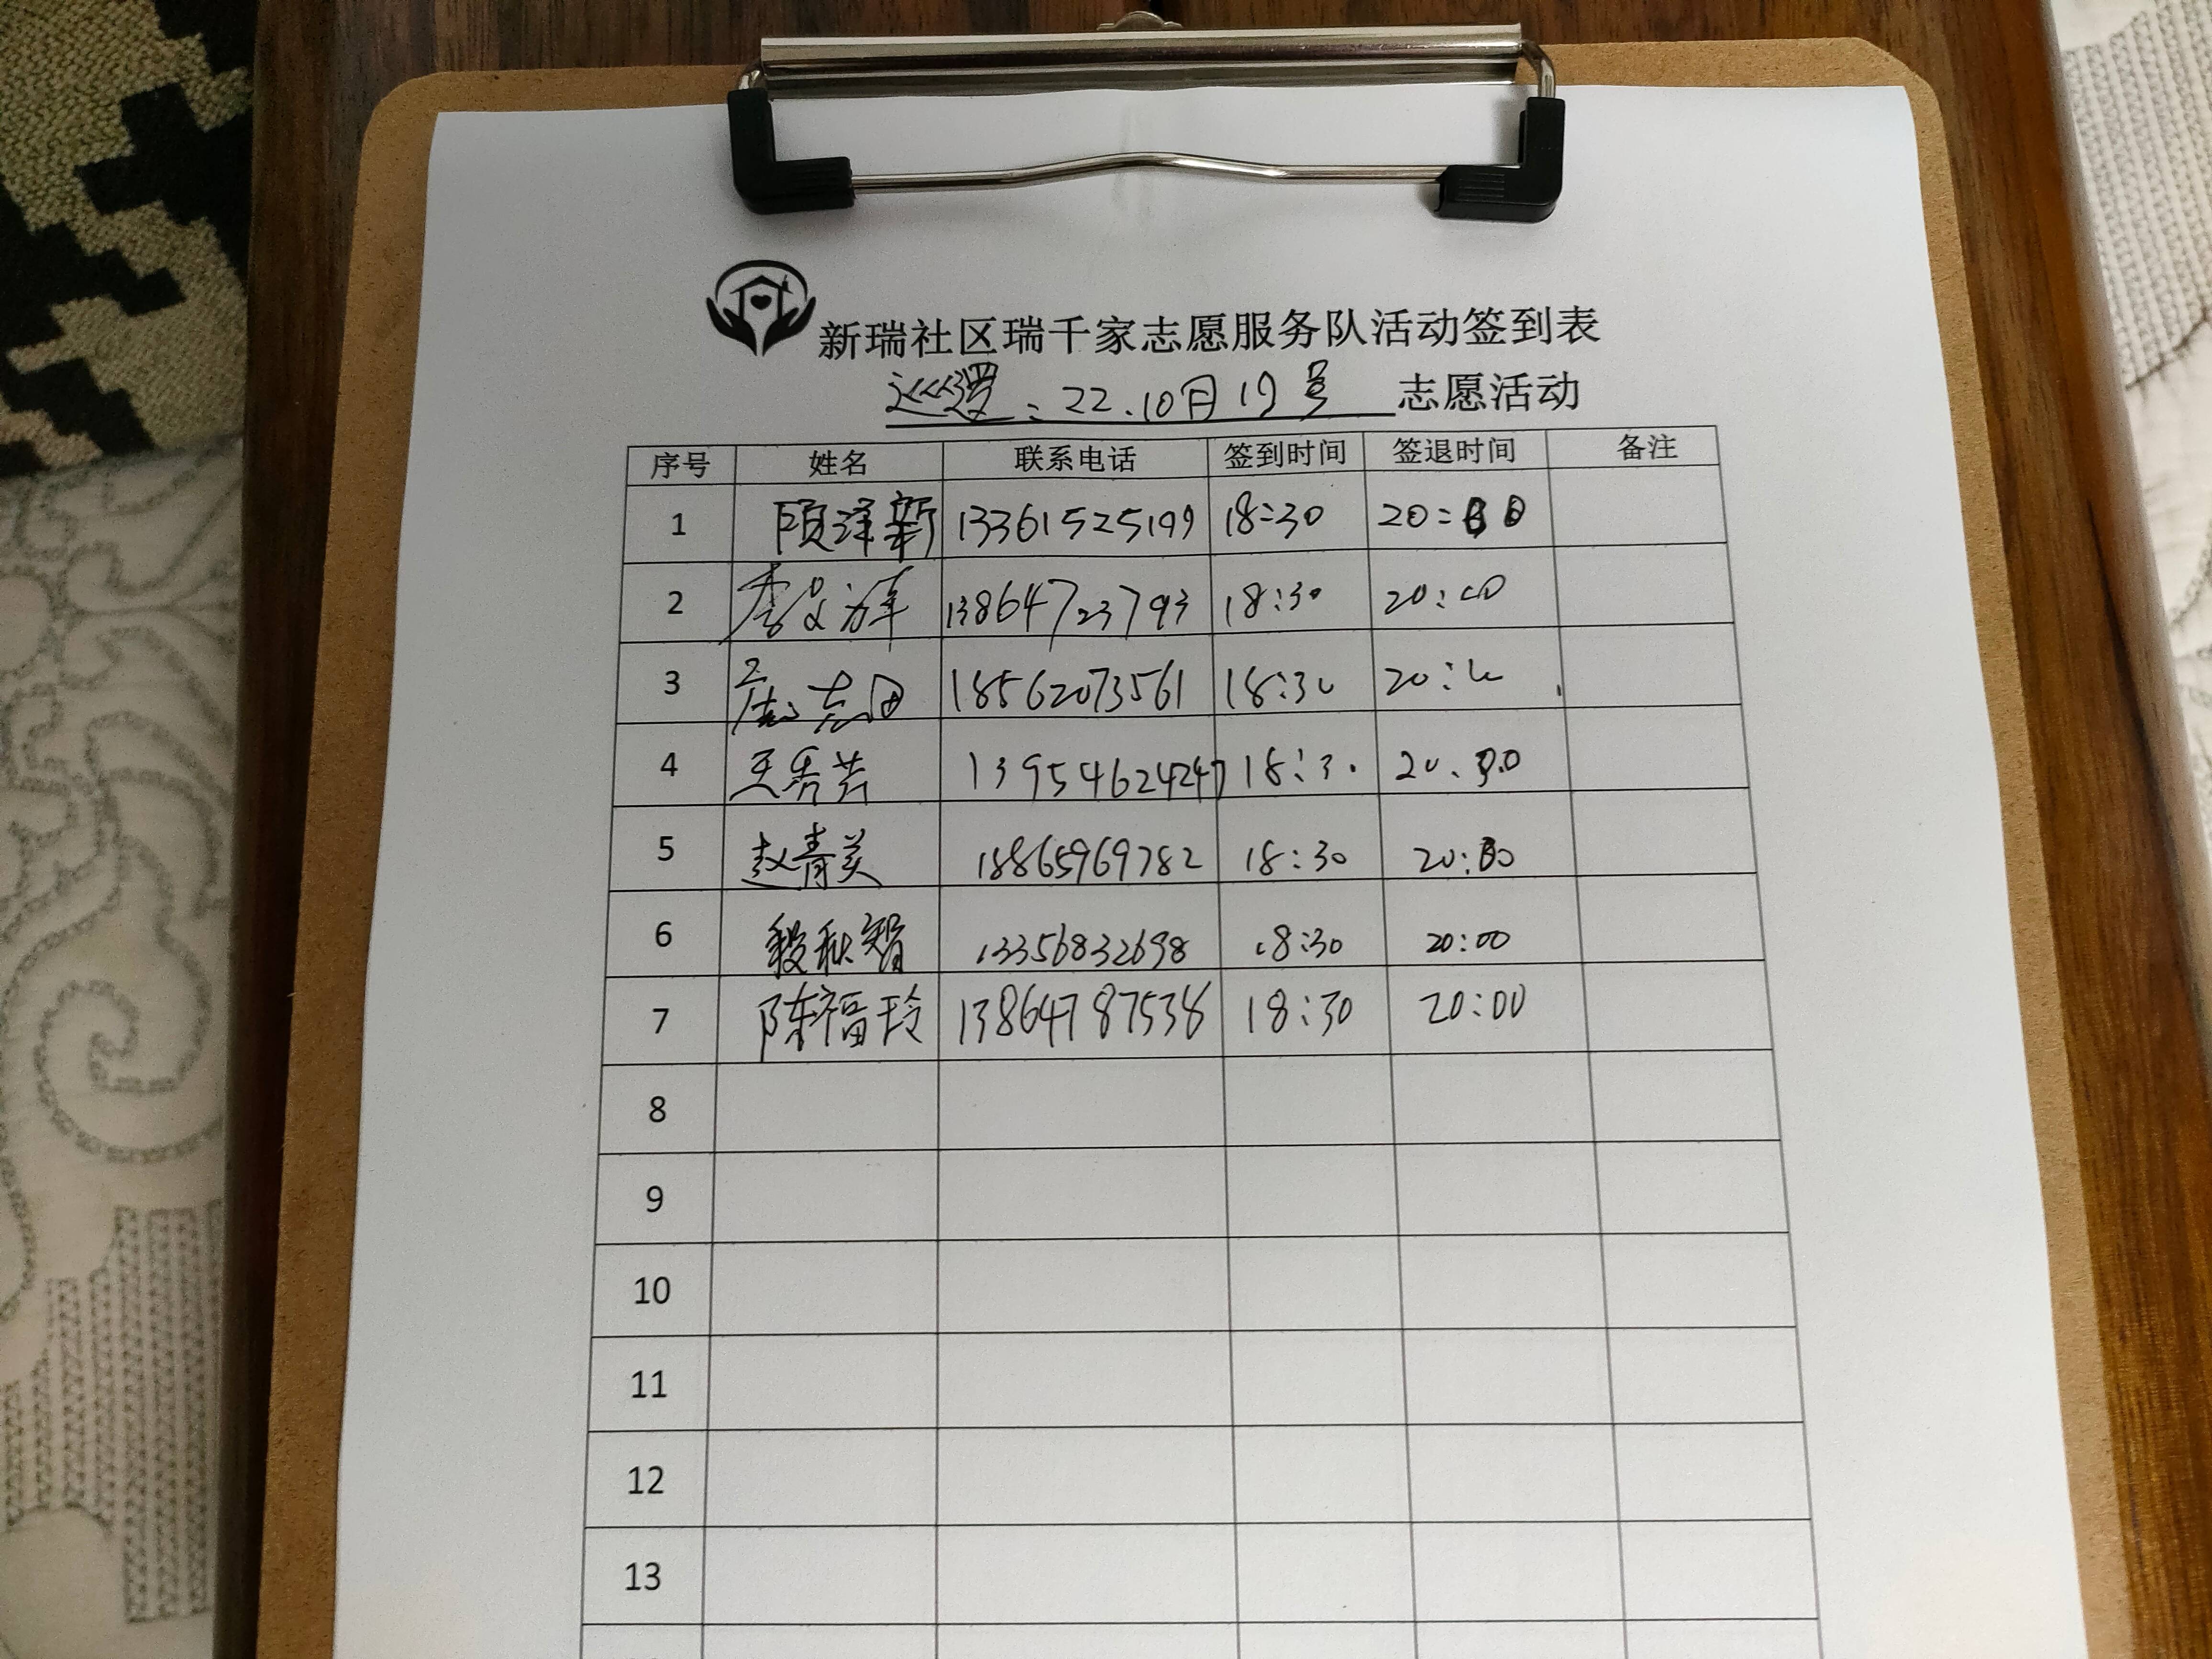 新瑞社区瑞千家志愿服务队活动签到表
巡逻：22.10月19号 志愿活动
序号 姓名 联系电话 签到时间 签退时间 备注
1 顾泽新 13361525199 18:30 20:00
2 李文 13864723793 18:30 20:00
3 志团 18562073561 18:30 20:00
4 王秀芸 13954624247 18:30 20:00
5 赵青美 18865969782 18:30 20:00
6 秋智 13356832698 18:30 20:00
7 陈福玲 13864787538 18:30 20:00
8
9
10
11
12
13